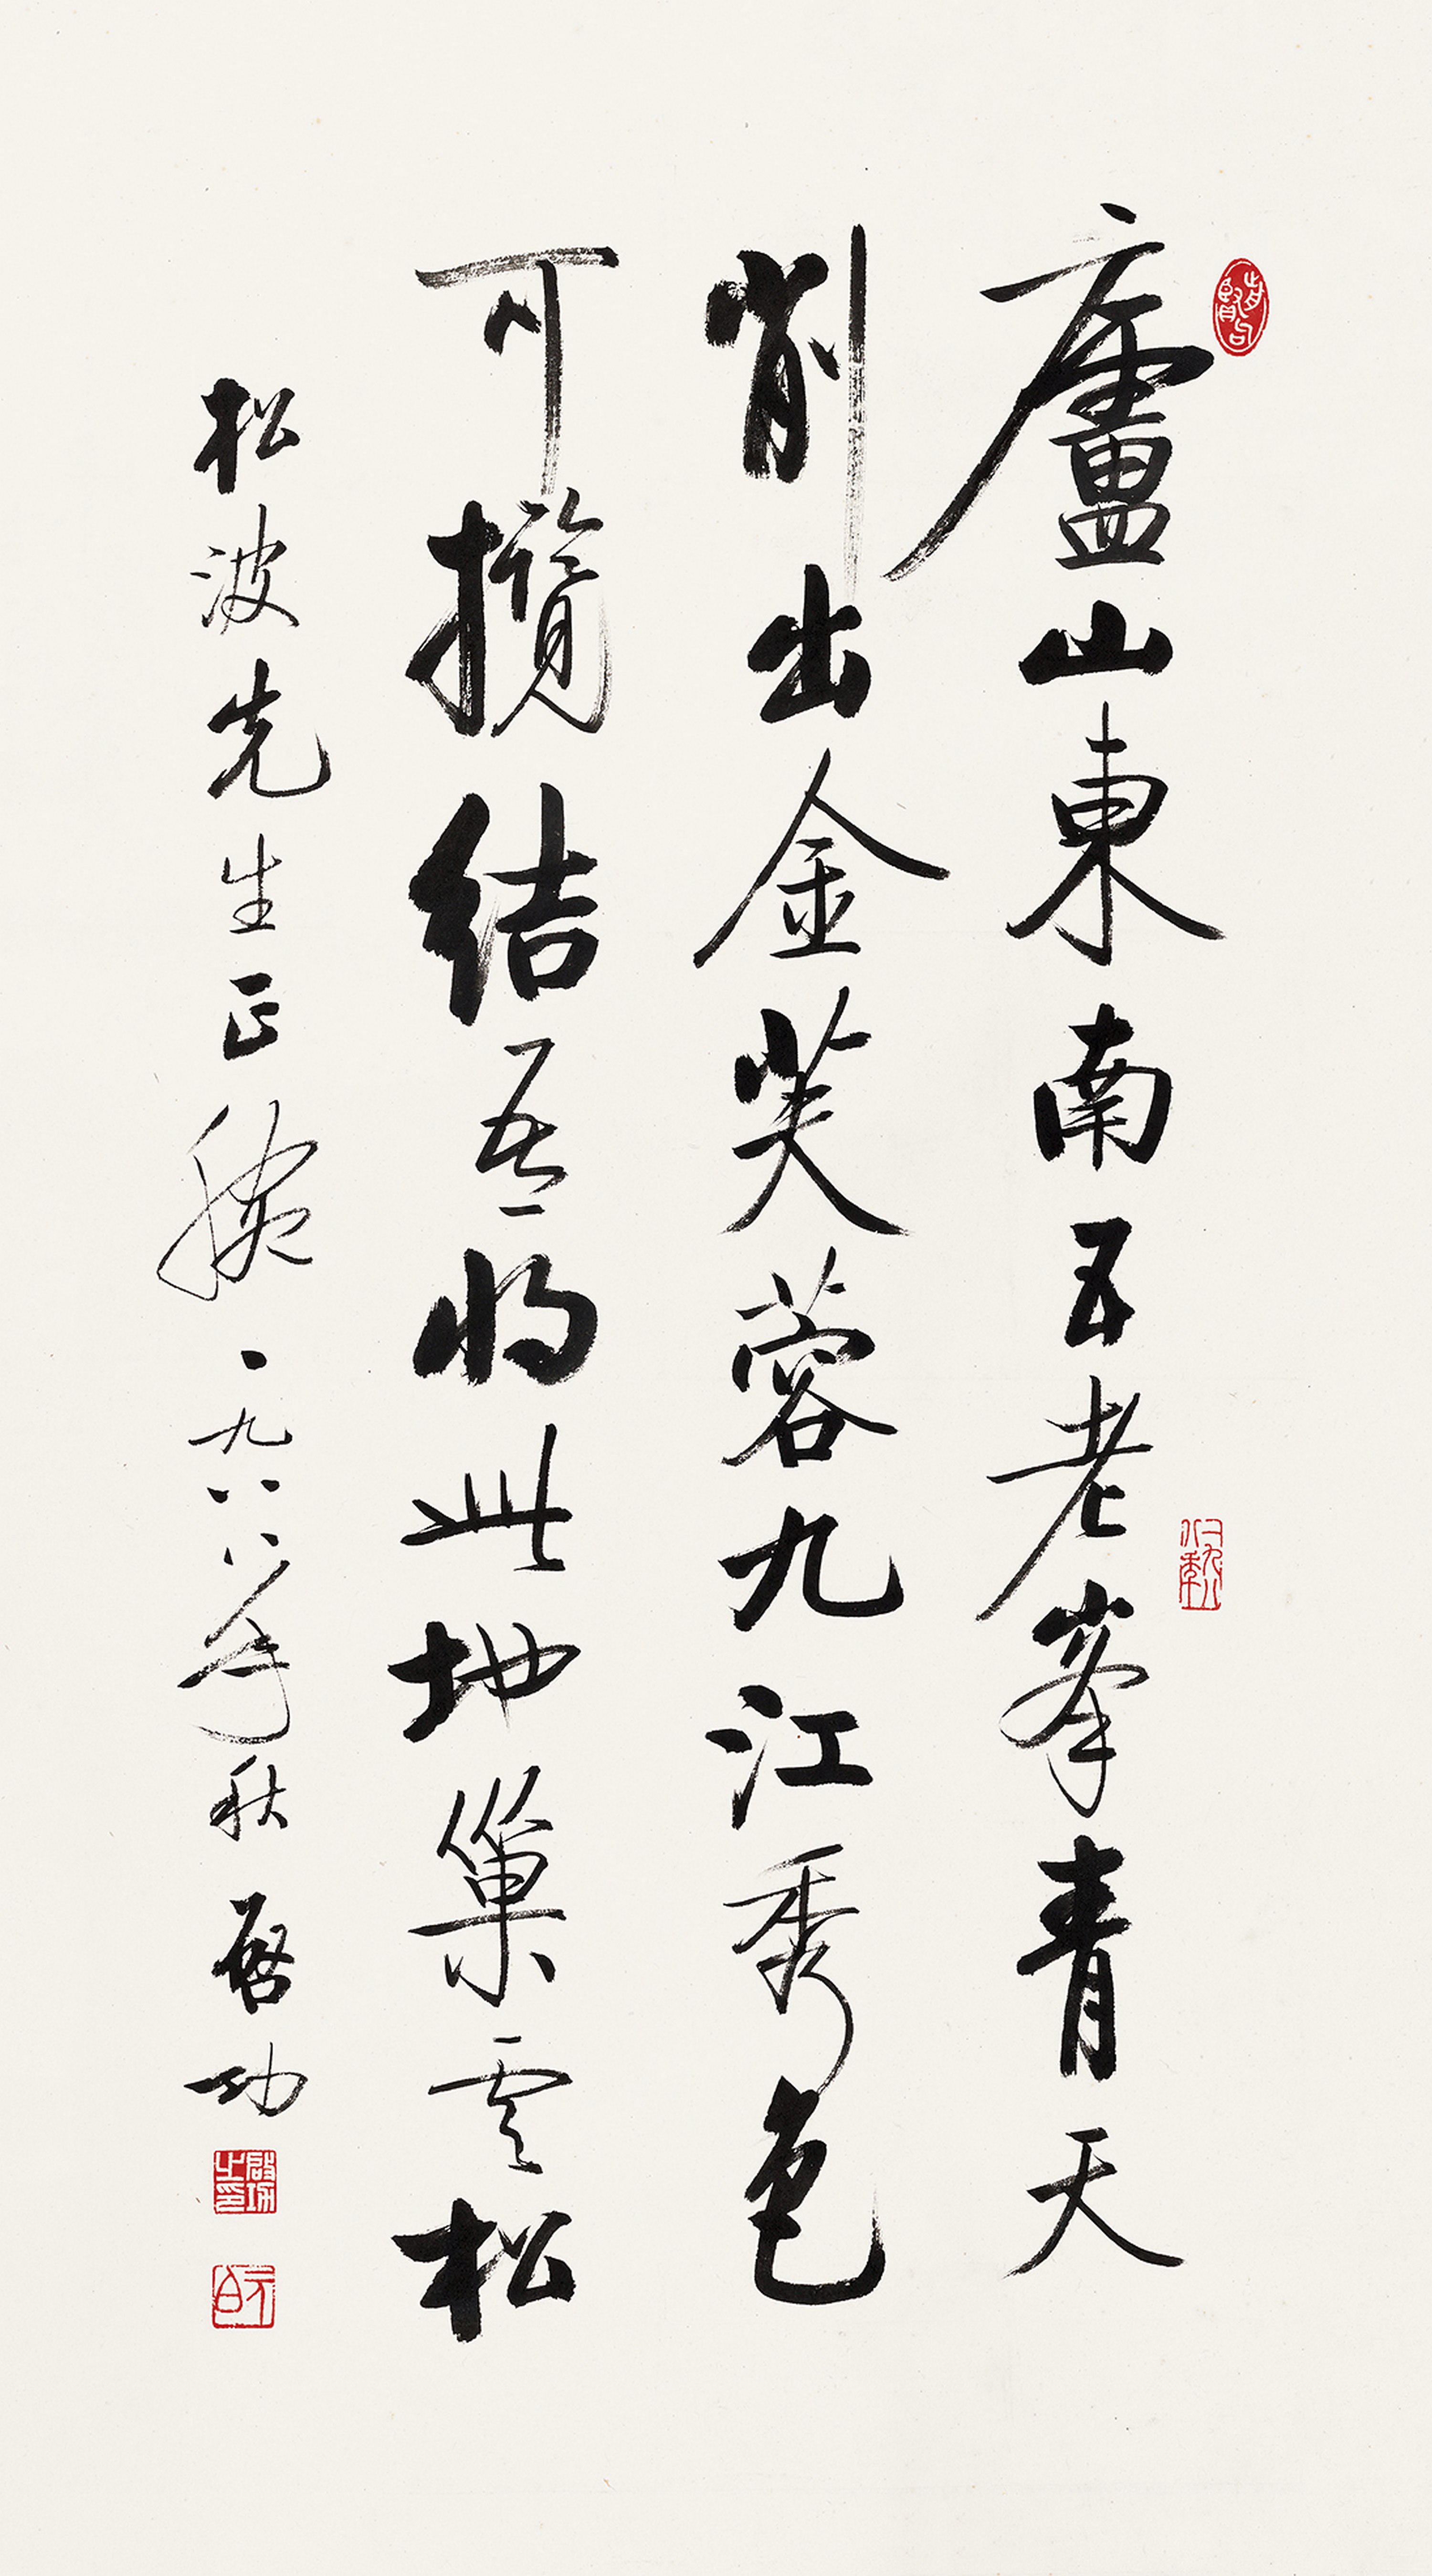 廬山東南五老峯青天
削出金芙蓉九江秀色
可攬結吾將此地巢雲松
松波先生正腕 一九八八年秋 啓功
啓功之印
元白